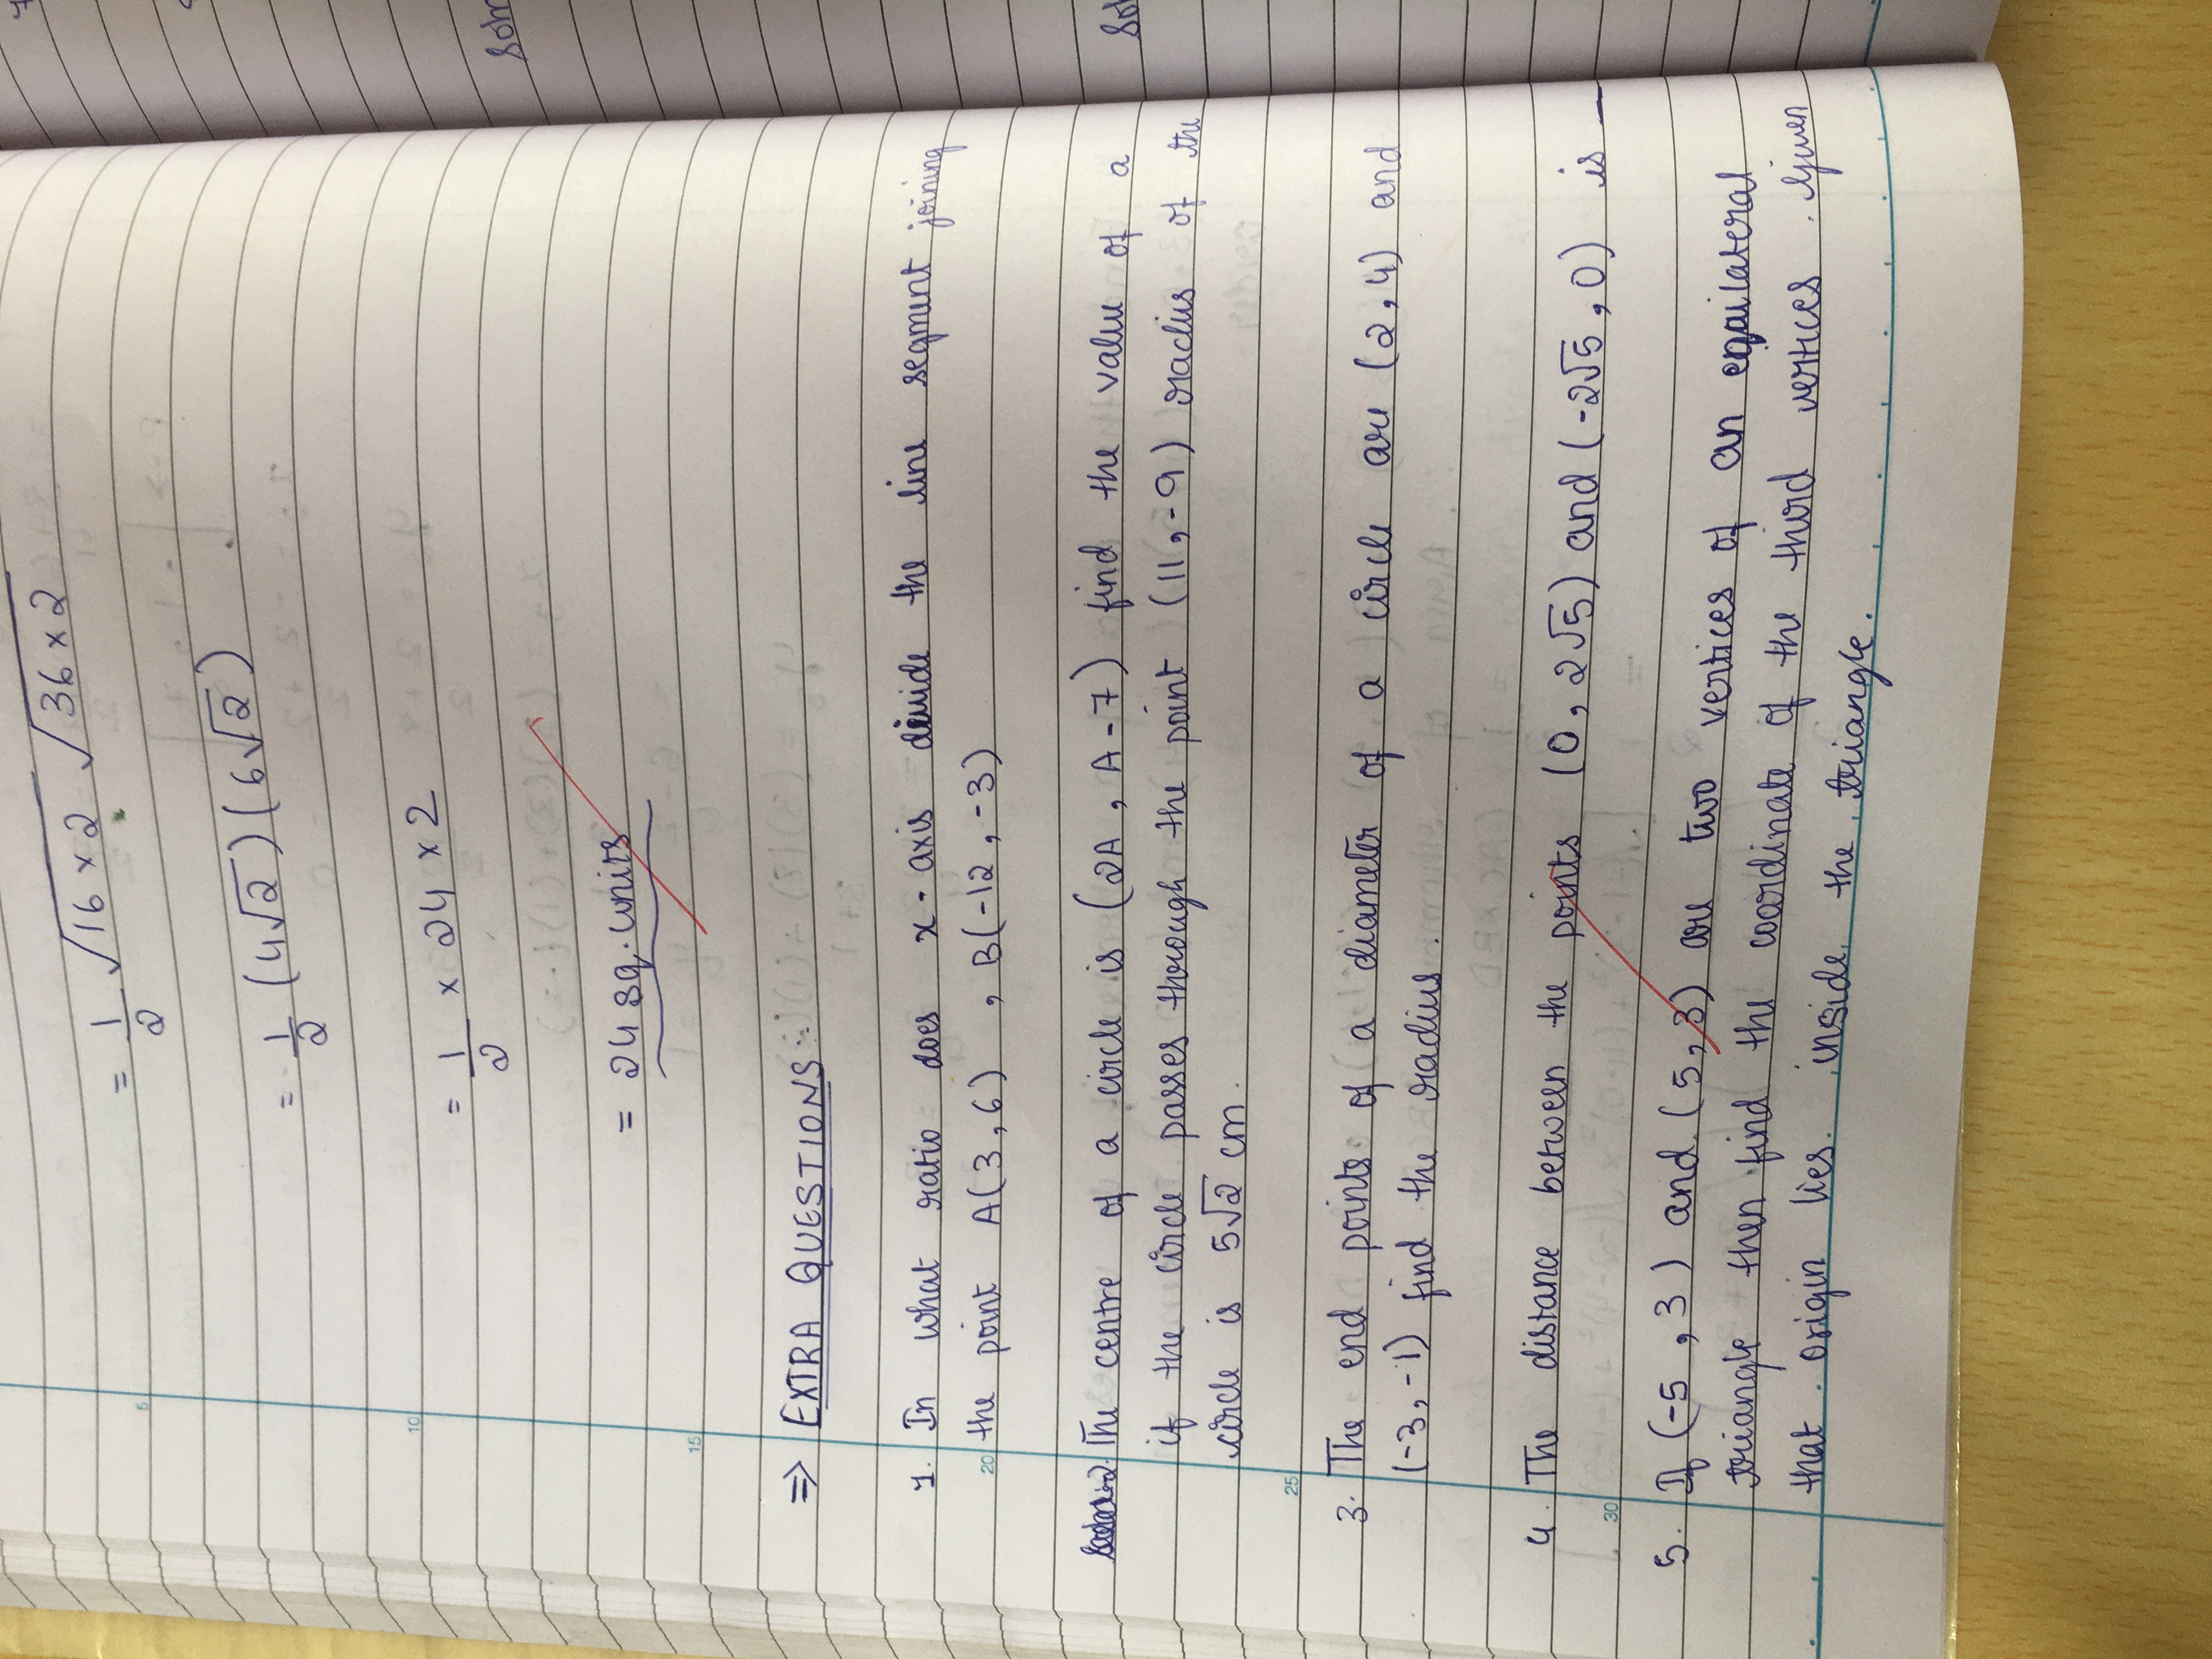 = 1/2 √16 × 2 √36 × 2
= 1/2 (4√2) (6√2)
= 1/2 × 24 × 2
= 24 sq. units
⇒ EXTRA QUESTIONS:
1. In what ratio does x-axis divide the line segment joining
the point A(3,6) , B(-12,-3)
2. The centre of a circle is (2A, A-7) find the value of a
if the circle passes through the point (11,-9) radius of the
circle is 5√2 cm.
3. The end points of a diameter of a circle are (2,4) and
(-3,-1) find the radius.
4. The distance between the points (0, 2√5) and (-2√5, 0) is —
5. If (-5, 3) and (5, 3) are two vertices of an equilateral
triangle then find the coordinate of the third vertices. Given
that origin lies inside the triangle.
5
10
15
20
25
30